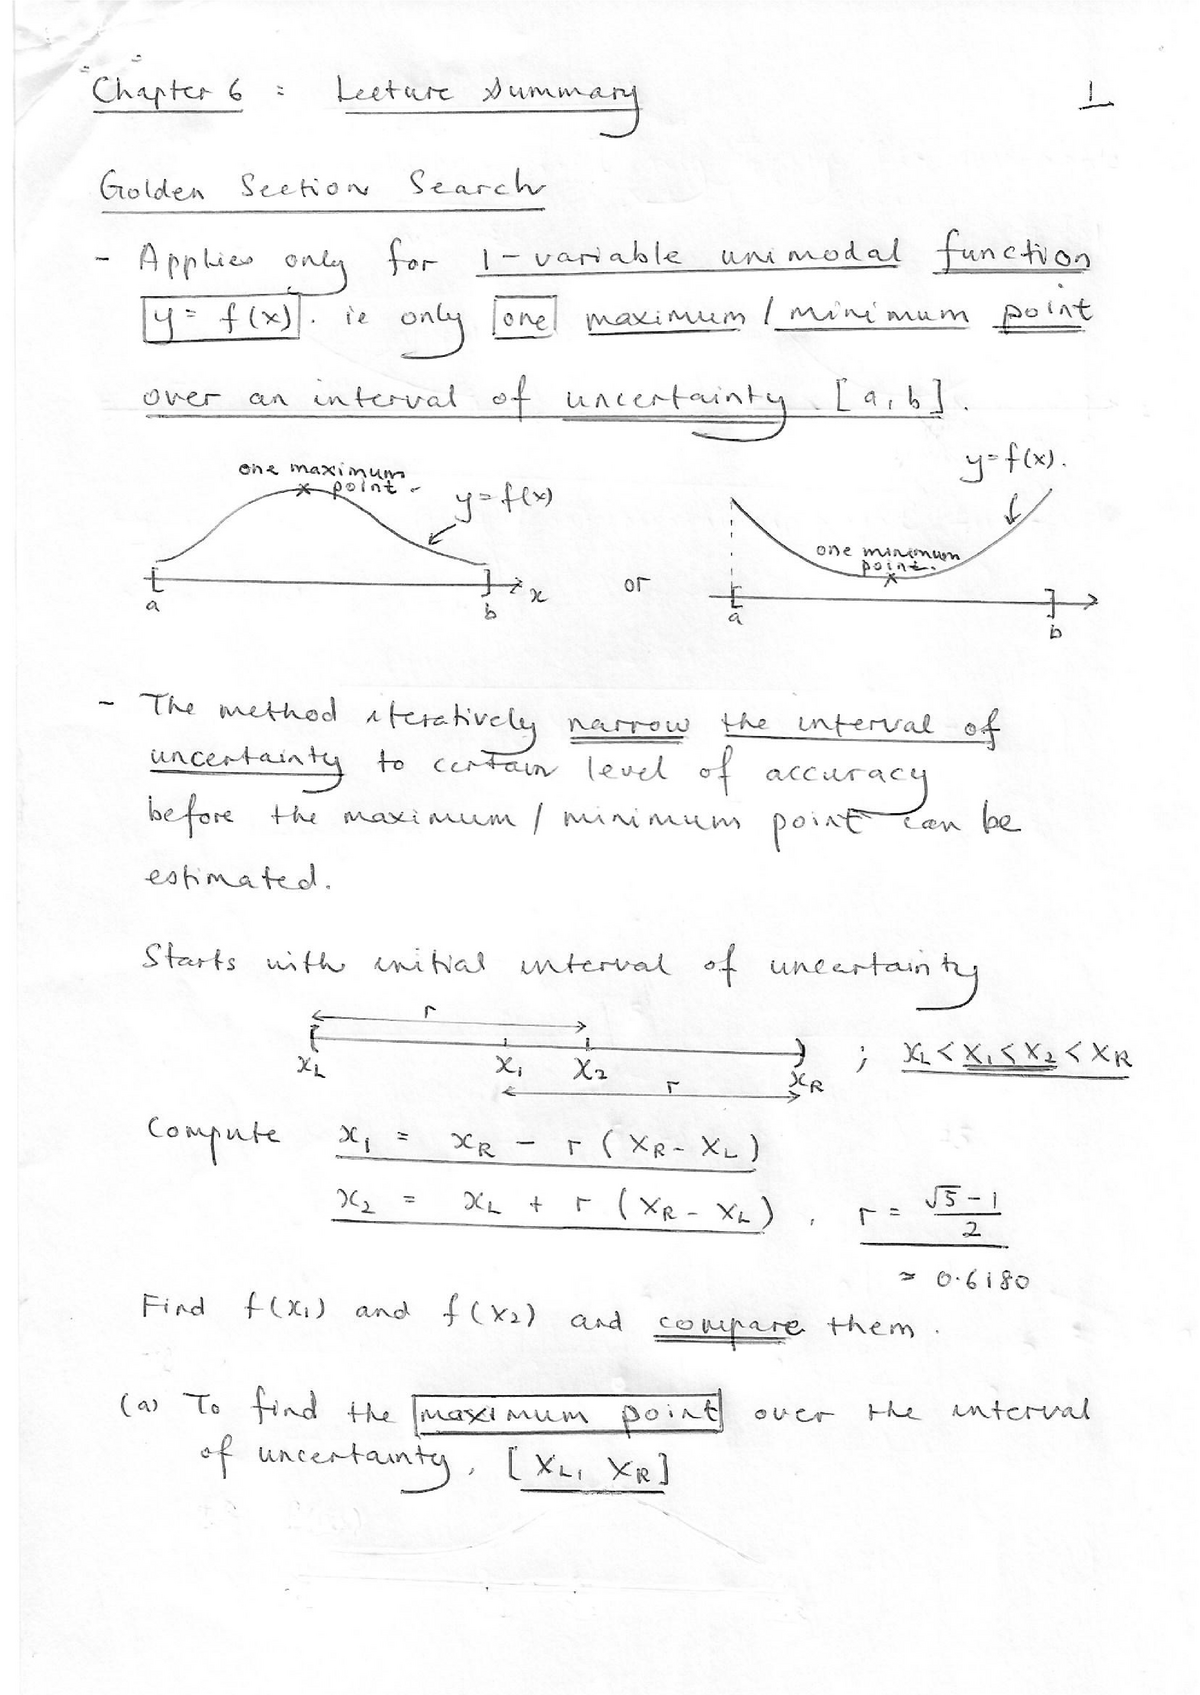 Chapter 6 : Lecture Summary
1
Golden Section Search
- Applies only for 1-variable unimodal function
y = f(x) . ie only one maximum / minimum point
over an interval of uncertainty [a, b] .
one maximum
point
y = f(x)
a
b
x
or
y = f(x).
one minimum
point.
a
b
- The method iteratively narrow the interval of
uncertainty to certain level of accuracy
before the maximum / minimum point can be
estimated.
Starts with initial interval of uncertainty
r
xL x1 x2 xR ; xL < x1 < x2 < xR
r
Compute x1 = xR - r ( xR - xL )
x2 = xL + r ( xR - xL ) , r = (√5 - 1)/2
≈ 0.6180
Find f(x1) and f(x2) and compare them .
(a) To find the maximum point over the interval
of uncertainty, [ xL, xR ]